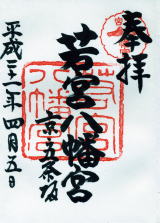 奉拝
若宮八幡宮
京五条坂
平成三十一年四月五日